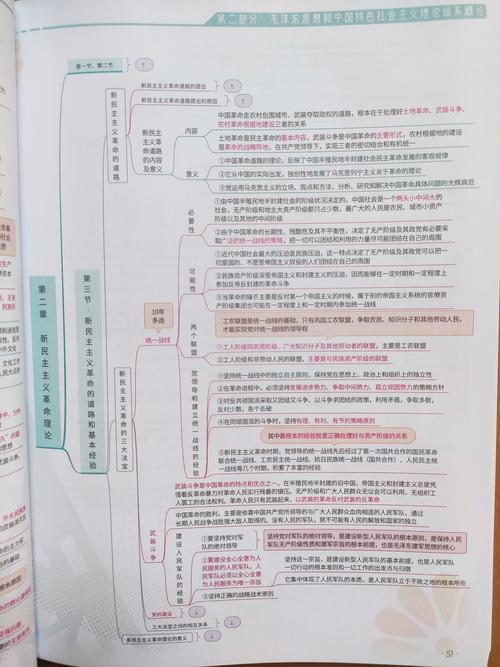 第二部分·毛泽东思想和中国特色社会主义理论体系概论
第一节、第二节
新民主主义革命道路的提出
新民主主义革命道路提出的原因
新民主主义革命的道路
新民主主义革命道路的内容及意义
内容
中国革命走农村包围城市、武装夺取政权的道路，根本在于处理好土地革命、武装斗争、
农村革命根据地建设三者的关系
土地革命是民主革命的基本内容，武装斗争是中国革命的主要形式，农村根据地的建设
是革命的战略阵地，在共产党领导下，实现三者的密切结合和有机统一
意义
①中国革命道路的理论，反映了中国半殖民地半封建社会民主革命发展的客观规律
②它从中国的实际出发，独创性地发展了马克思列宁主义关于革命的理论
③党运用马克思主义的立场、观点和方法，分析、研究和解决中国革命具体问题的光辉典范
第二章 新民主主义革命理论
第三节·新民主主义革命的道路和基本经验
新民主主义革命的三大法宝
10年
多选
统一战线
必要性
①由中国半殖民地半封建社会的阶级状况决定的。中国社会是一个两头小中间大的
社会，无产阶级和地主大资产阶级都只占少数，最广大的人民是农民、城市小资产
阶级以及其他的中间阶级
②由于中国革命的长期性、残酷性及其不平衡性，决定了无产阶级及其政党有必要采
取广泛的统一战线的策略，把一切可以团结和利用的力量尽可能团结在自己的周围
可能性
①近代中国社会最大的压迫是民族压迫，这一特点决定了无产阶级及其政党可以把一
切爱国的、不愿受帝国主义奴役的人们团结在自己的周围
②民族资产阶级深受帝国主义和封建主义的压迫，因而能够在一定时期和一定程度上
参加反帝反封建的革命斗争
③当革命的锋芒主要是反对某一个帝国主义的时候，属于别的帝国主义系统的官僚资
产阶级集团也可能在一定程度上和一定时期内参加统一战线
两个联盟
工农联盟是统一战线的基础，只有巩固工农联盟，争取农民、知识分子和其他劳动人民，
才能实现党对统一战线的领导权
①工人阶级同农民阶级、广大知识分子及其他劳动者的联盟，主要是工农联盟
②工人阶级和非劳动人民的联盟，主要是与民族资产阶级的联盟
党领导和建立统一战线的经验
①坚持统一战线中的独立自主原则，保持党在思想上、政治上和组织上的独立性
②在革命进程中，必须坚持发展进步势力、争取中间势力、孤立顽固势力的策略方针
③对反共顽固派采取又团结又斗争、以斗争求团结的政策，利用矛盾，争取多数，
反对少数，各个击破
④在同顽固派的斗争时，坚持有理、有利、有节的策略原则
其中最根本的经验就是正确处理好与资产阶级的关系
⑤新民主主义革命时期，党领导的统一战线先后经过了第一次国共合作的国民革命
联合统一战线、工农民主统一战线、抗日民族统一战线（国共合作）、人民民主统
一战线等几个时期，积累了丰富的经验
武装斗争
武装斗争是中国革命的特点和优点之一。在半殖民地半封建的旧中国，帝国主义和封建主义总是凭
借着反革命暴力对革命人民实行残暴的镇压。无产阶级和广大人民群众无议会可以利用，无组织工
人罢工的合法权利。革命人民只有武装起来，以武装的革命反对武装的反革命
中国革命的胜利，主要是依靠中国共产党所领导的与广大人民群众血肉相连的人民军队，通过
长期人民战争战胜强大敌人取得的。没有人民的军队，就不可能有人民的解放和国家的独立
建设人民军队的经验
①要坚持党对军
队的绝对领导
坚持党对军队的绝对领导，是建设新型人民军队的根本原则，是保持人民
军队无产阶级性质和建军宗旨的根本前提，也是毛泽东建军思想的核心
②要建设全心全意为
人民服务的人民军队。人
民军队必须以全心全意
为人民服务为唯一宗旨
坚持这一宗旨，是建设新型人民军队的基本前提，也是人民军队
一切行动的根本准则和一切工作的出发点与归宿
它集中体现了人民军队的本质，是人民军队立于不败之地的根本所在
③坚持正确的战略战术原则
党的建设
三大法宝之间的相互关系
新民主主义革命理论的意义
51